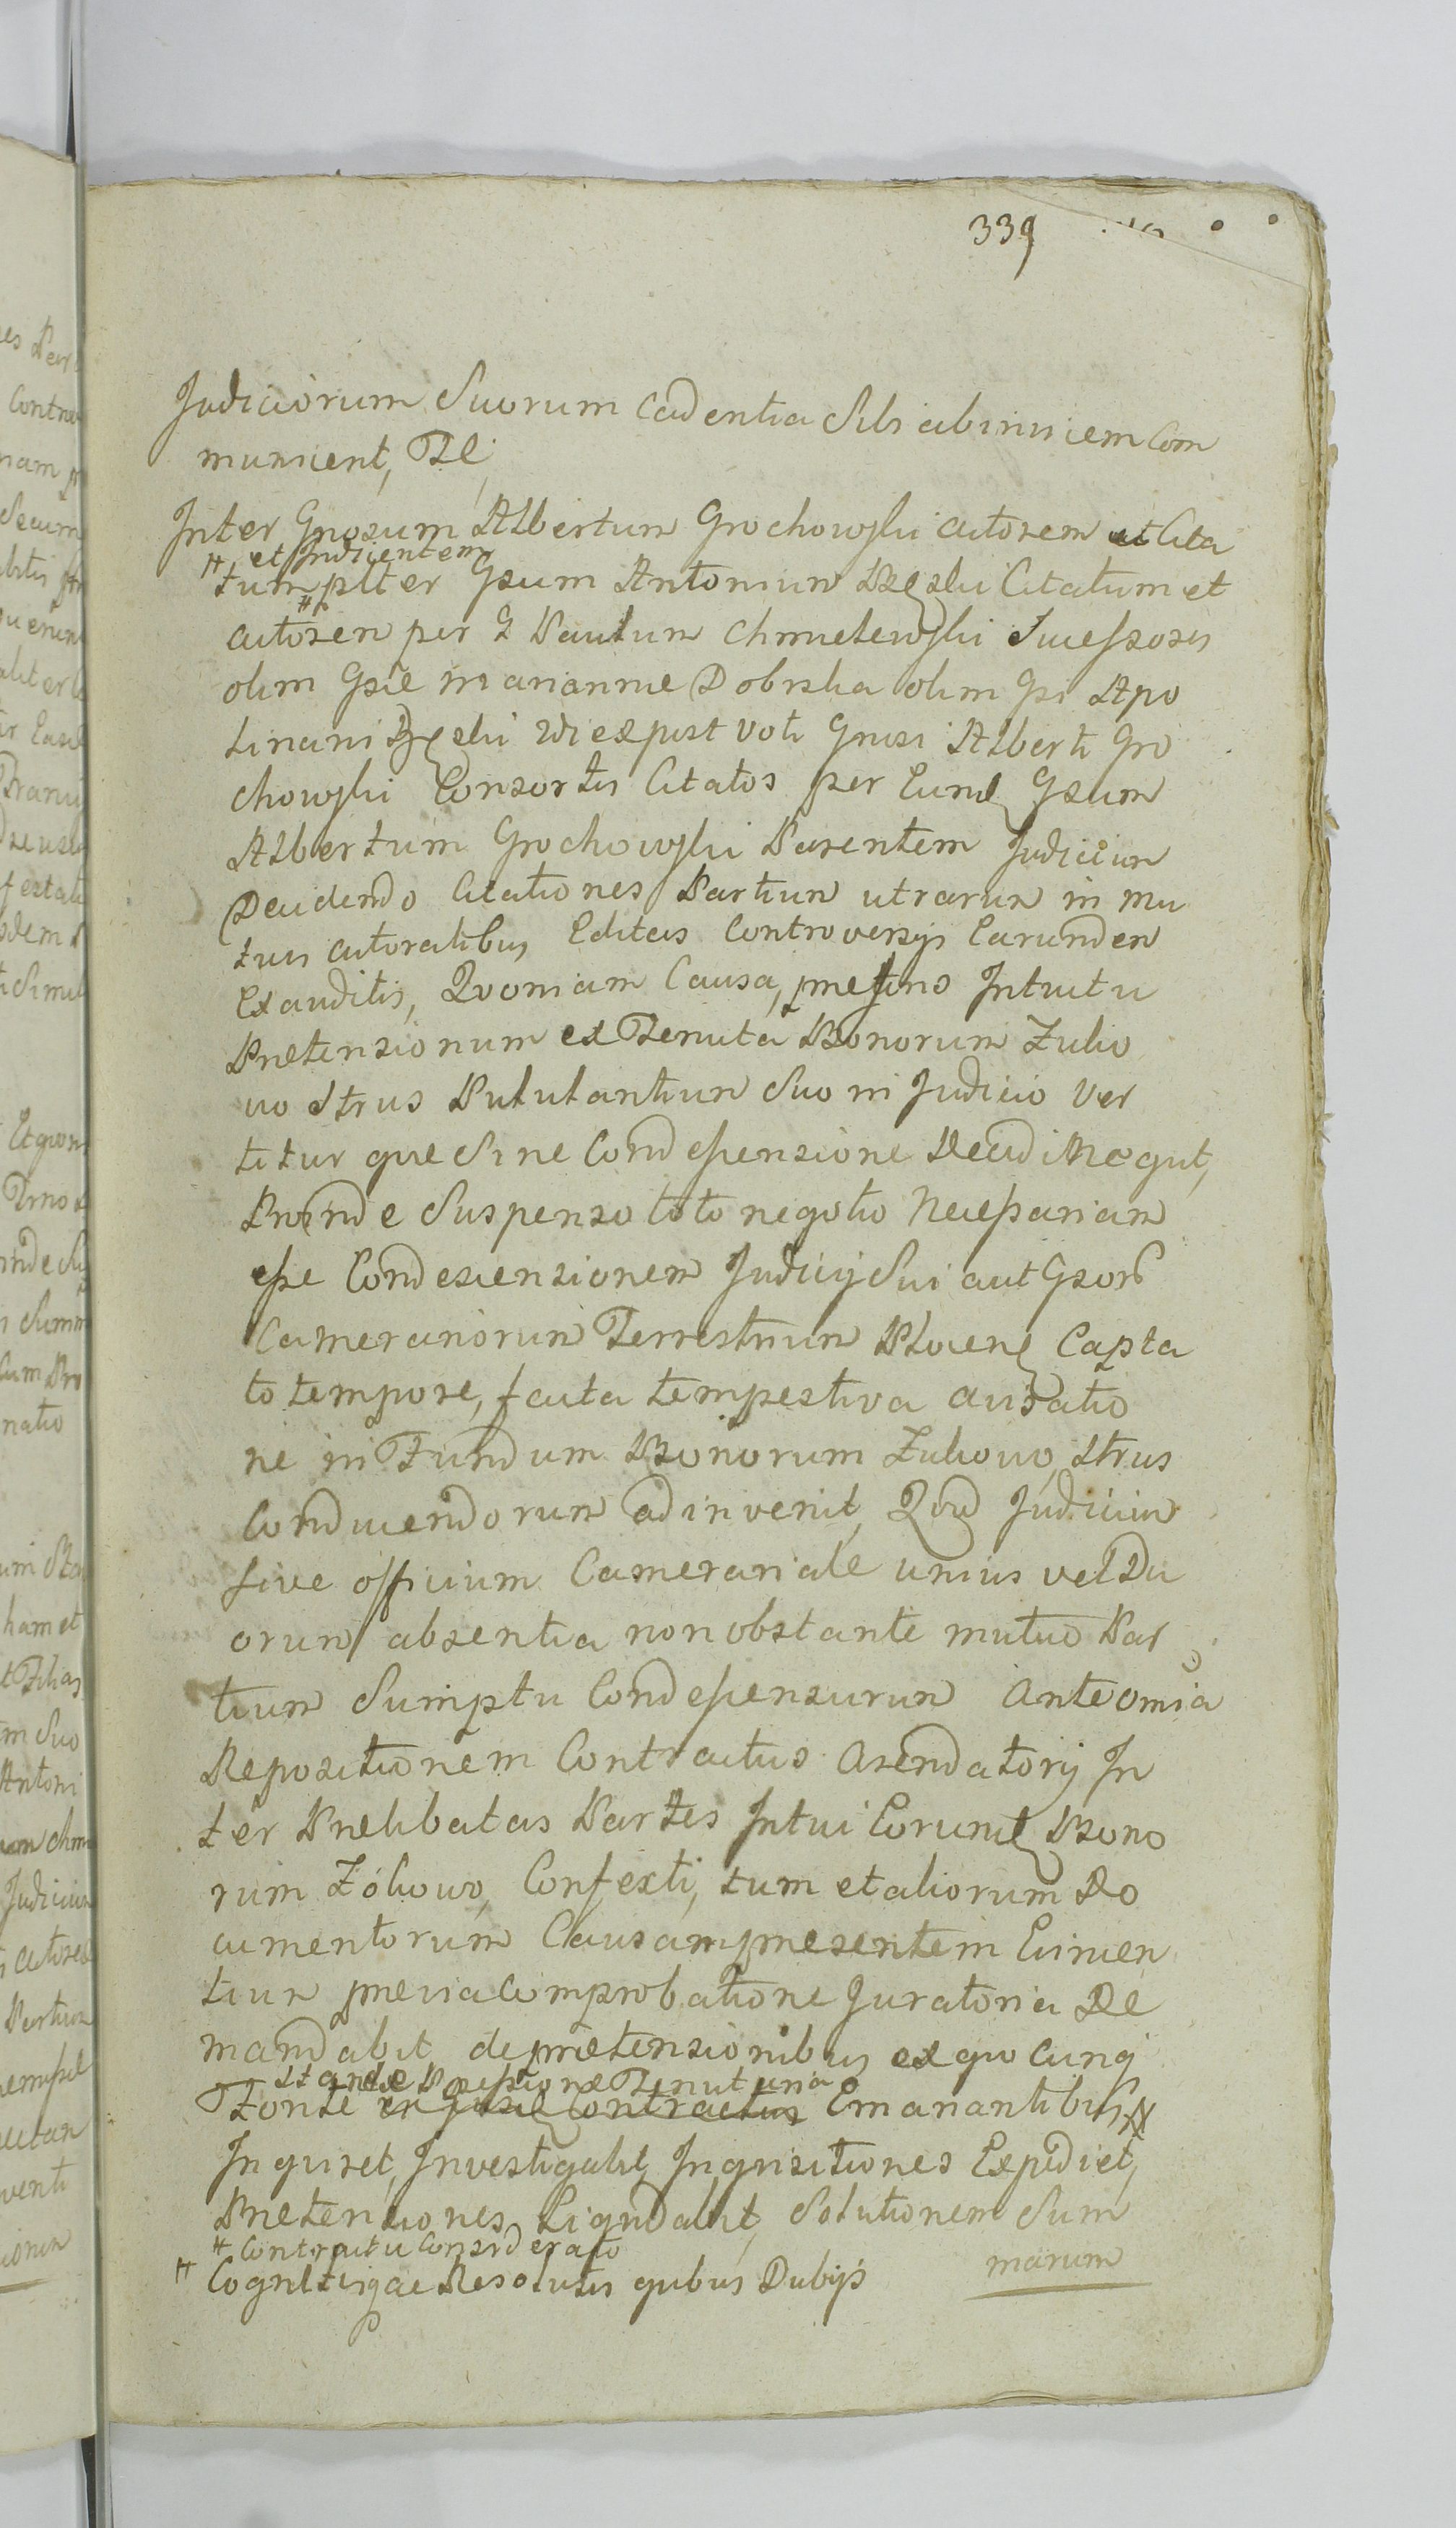 339
Judiciorum Suorum Cadentia Sibi abinvicem Com
munient, Pl
Inter Gnosum Albertum Grochowski Actorem et Cita
# et Indicentem
tum plter Gsum Antonium Citatum et
Actorem per G Paulum Chmielewski Successores
olim Gsie Marianne Dobrska olim Gsi Apo
linari ski vi ex post voti Gnosi Alberti Gro
chowski Consortis Citatos per Eund Gsum
Albertum Grochowski Parentem Judicium
Decidendo Citationes Partium utrarum in mu
tuis actoratibus Editas Controversys Earundem
Exauditis, Quoniam Causa, prnes Intuitu
Prietensionum ex Tenuta Bonorum Zulio
wo Strus Pululantium Suo in Judicio Ver
titur que Sine Condessensione Decidi Nequt,
Proinde Suspenso toto negotio Necessariam
esse Condescensionem Judicij Sui aut Gsorum
Camerariorum Terrestrium Plocens Capta
to tempore, facta tempestiva avisatio
ne in Fundum Bonorum Zuliowo, Strus
Conducendorum adinvenit, Quod Judicium
sive officium Camerariale unius vel Du
orum absentia non obstante mutuo Par
tium Sumptu Condessensurum Ante omia
Repositionem Contractus Arendatorij In
ter Prielibatas Partes Intui Eorund Bono
rum Zóliowo, Confecti, tum et aliorum Do
cumentorum Causam prnesentem Evincen
tium prnevia Comprobatione Juratoria De
mandabit de prnetensionibus ex quo Cunq
stante Possessione Tenutaria
Fonte ex Contractus Emanantibus #
Inquiret, Investigabit, Inquisitiones Expediet,
Prnetensiones Liqudabit, Solutionem Sum
# Contractu Considerato
# Cognitisque Resolutis qubus Dubijs
marum